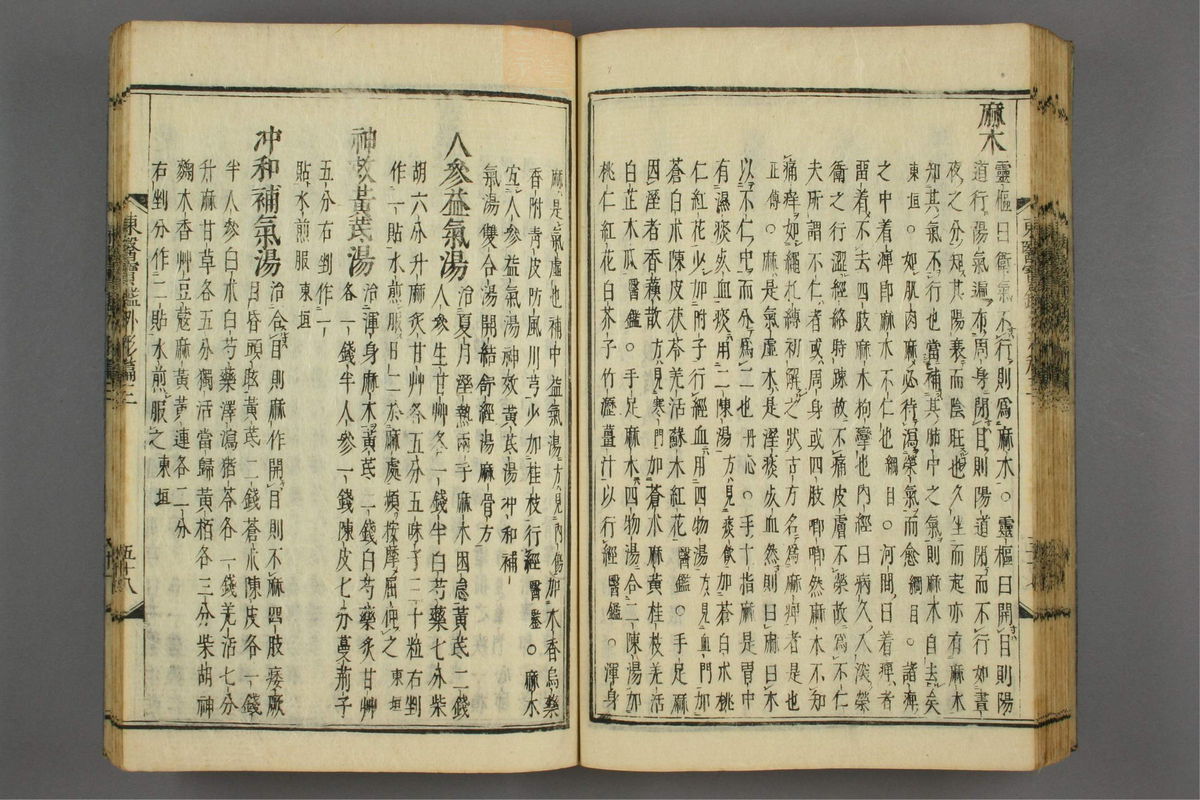 麻木
靈樞曰衛氣不行則爲麻木○靈樞曰開目則陽
道行陽氣遍布周身閉目則陽道閉而不行如晝
夜之分知其陽衰而陰旺也久坐而起亦有麻木
知其氣不行也當補其肺中之氣則麻木自去矣
東垣○如肌肉麻必待瀉榮氣而愈綱目○諸痺
之中着痺卽麻木不仁也綱目○河間曰着痺者
留着不去四肢麻木拘攣也內經曰病久入深榮
衛之行澁經絡時踈故不痛皮膚不榮故爲不仁
夫所謂不仁者或周身或四肢唧唧然麻木不知
痛痒如繩扎縛初解之狀古方名爲麻痺者是也
正傳○麻是氣虛木是濕痰死血然則曰麻曰木
以不仁中而分爲二也丹心○手十指麻是胃中
有濕痰死血痰用二陳湯方見痰飮加蒼白朮桃
仁紅花少加附子行經血用四物湯方見血門加
蒼白朮陳皮茯苓羌活蘇木紅花醫鑑○手足麻
因濕者香蘓散方見寒門加蒼朮麻黃桂枝羌活
白芷木瓜醫鑑○手足麻木四物湯合二陳湯加
桃仁紅花白芥子竹瀝薑汁以行經醫鑑○渾身
麻是氣虛也補中益氣湯方見內傷加木香烏藥
香附靑皮防風川芎少加桂枝行經醫鑒○麻木
宜人參益氣湯神效黃芪湯冲和補
氣湯雙合湯開結舒經湯麻骨方
人參益氣湯
治夏月濕熱兩手麻木困怠黃芪二錢
人參生甘艸各一錢半白芍藥七分柴
胡六分升麻炙甘艸各五分五味子三十粒右剉
作一貼水煎服日二亦麻處頻按摩屈伸之東垣
神效黃芪湯
治渾身麻木黃芪二錢白芍藥炙甘艸
各一錢半人參一錢陳皮七分蔓荊子
五分右剉作一
貼水煎服東垣
冲和補氣湯
治合目則麻作開目則不麻四肢痿厥
目昏頭眩黃芪二錢蒼朮陳皮各一錢
半人參白朮白芍藥澤瀉猪苓各一錢羌活七分
升麻甘草各五分獨活當歸黃栢各三分柴胡神
麴木香艸豆蔻麻黃黃連各二分
右剉分作二貼水煎服之東垣
東醫寶鑑外形篇
五十八